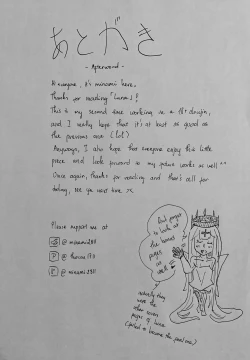 あとがき
- Afterword -
Hi everyone, it's minami here.
Thanks for reading 「Luna」!!
This is my second time working on a doujin,
and I really hope that it's at least as good as
the previous one (lol)
Anyways, I also hope that everyone enjoy this little
piece and look forward to my future works as well ^^
Once again, thanks for reading and that's all for
today, see you next time >x.
Please support me at
Don't forget
to look at
the bonus
pages as
well !!
actually they
were the
other cover
pages of Luna